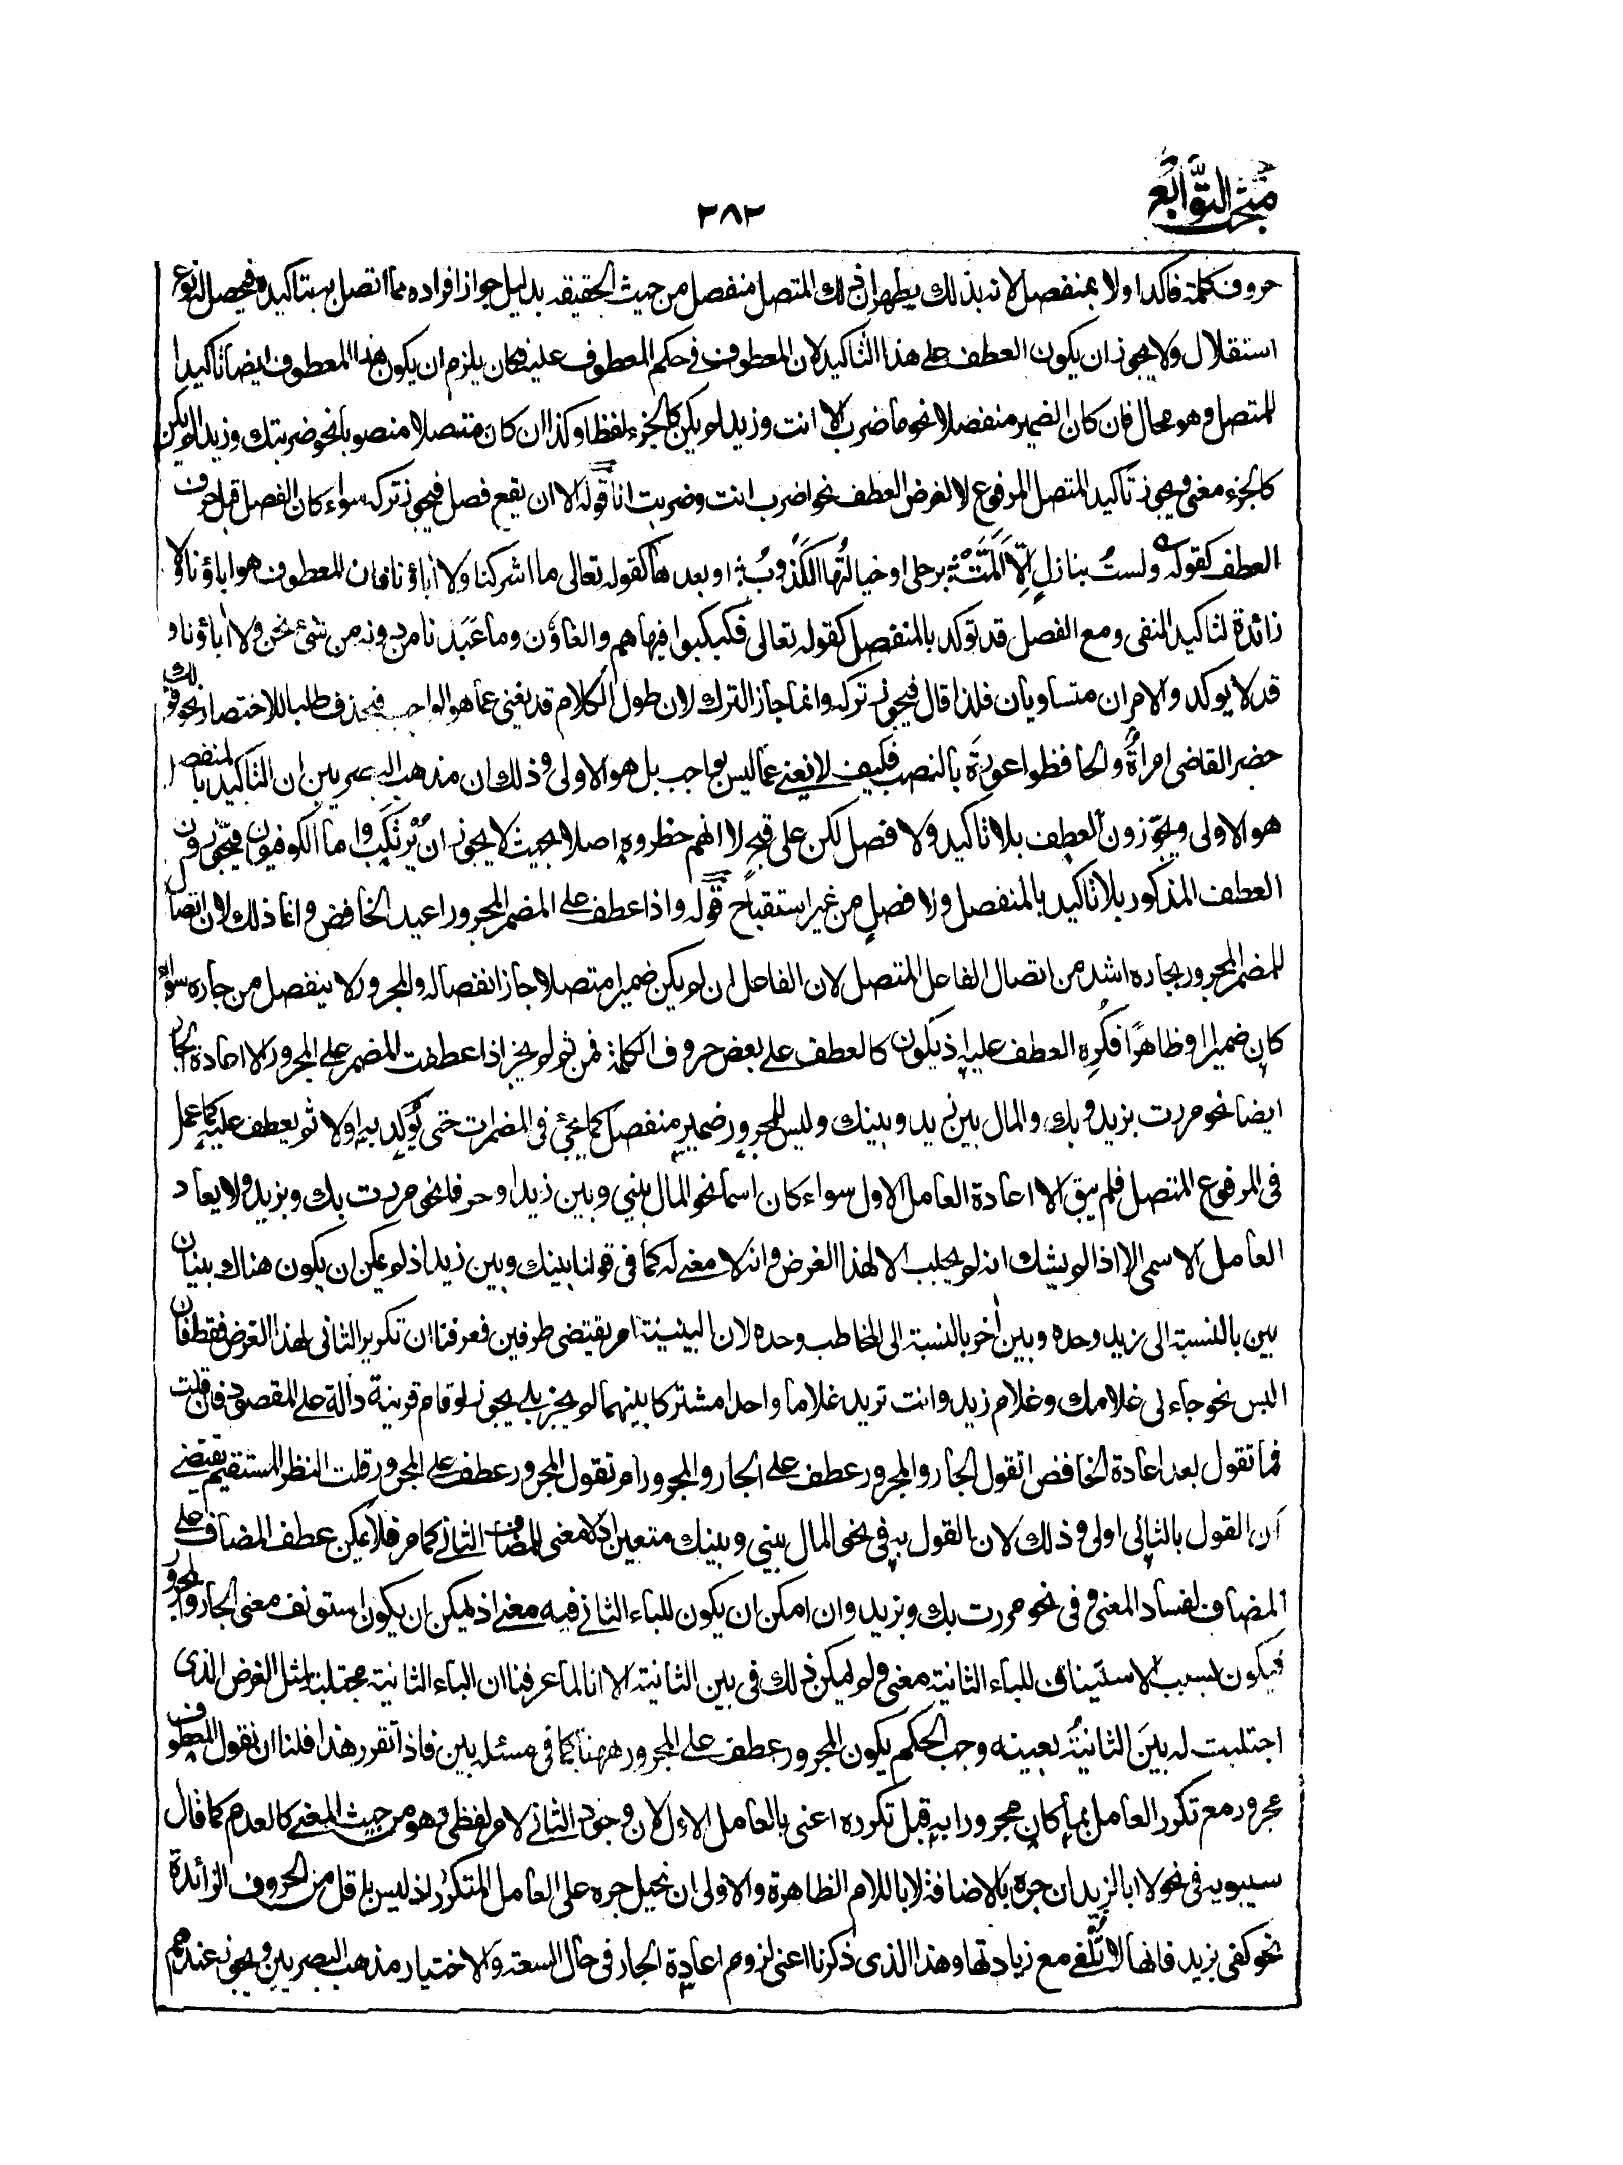 مبحث التوابع
٢٨٢
حروف كلمته فاكد اولا بمنفصل لانه بذلك يظهر ان ذلك المتصل منفصل من حيث الحقيقه بدليل جواز افراده مما اتصل به بتاكيده فيحصل له نوع
استقلال ولا يجوز ان يكون العطف على هذا التاكيد لان المعطوف في حكم المعطوف عليه فكان يلزم ان يكون هذا المعطوف ايضا تاكيدا
للمتصل وهو محال فان كان الضمير منفصلا نحو ما ضرب الا انت وزيد لم يكن كالجزء لفظا وكذا ان كان متصلا منصوبا نحو ضربتك وزيدا لم يكن
كالجزء معنى ويجوز تاكيد المتصل المرفوع لا لغرض العطف نحو اضرب انت وضربت انا قوله الا ان يقع فصل فيجوز تركه سواء كان الفصل قبل حرف
العطف كقوله ولستُ بنازلٍ اِلّا اَلَمَّتْ برحلى او خيالتُها الكَذوبُ او بعدها كقوله تعالى ما اشركنا ولا اٰباؤنا فان المعطوف هو اباؤنا ولا
زائدة لتاكيد النفى ومع الفصل قد توكد بالمنفصل كقوله تعالى فكبكبوا فيها هم والغاوٗن وما عَبَدنا من دونه من شئ نحن ولا اٰباؤنا و
قد لا يوكد والامران متساويان فلذا قال فيجوز تركه وانما جاز الترك لان طول الكلام قد يغنى عما هو الواجب فيحذف طلبا للاختصار نحو قولك
حضر القاضى امراةٌ والحافظوا عورةَ بالنصب فكيف لا يغنى عما ليس بواجب بل هو الاولى وذلك ان مذهب البصريين ان التاكيد بالمنفصل
هو الاولى ويجوّزون العطف بلا تاكيد ولا فصل لكن على قبح لا انهم حظروه اصلا بحيث لا يجوز ان يُرتكَب واما الكوفيون فيجوّزون
العطف المذكور بلا تاكيد بالمنفصل ولا فصلٍ من غير استقباح قوله واذا عطف على المضمر المجرور اعيد الخافض وانما ذلك لان اتصال
المضمر المجرور بجاره اشد من اتصال الفاعل المتصل لان الفاعل ان لم يكن ضميرا متصلا جاز انفصاله والمجرور لا ينفصل من جاره سواءٌ
كان ضميرا او ظاهرًا فكُرِه العطف عليه اذ يكون كالعطف على بعض حروف الكلمة فمن ثم لم يجز اذا عطفت المضمر على المجرور الا اعادة الجار
ايضا نحو مررت بزيد وبك والمال بين زيد وبينك وليس للمجرور ضمير منفصل كما يجئ في المضمرات حتى يُوَكّد به اولا ثم يعطف عليه كما عمل
في المرفوع المتصل فلم يبق الا اعادة العامل الاول سواء كان اسما نحو المال بينى وبين زيد او حرفا نحو مررت بك وبزيد ولا يعاد
العامل الاسمى الا اذا لم يشك انه لم يجلب الا لهذا الغرض وانه لا معنى له كما في قولنا بينك وبين زيد اذ لم يمكن ان يكون هناك بينان
بين بالنسبة الى زيد وحده وبين اٰخر بالنسبة الى المخاطب وحده لان البينيّة امر يقتضى طرفين فعرفنا ان تكرير الثانى لهذا الغرض فقط فان
البس نحو جاءنى غلامك وغلام زيد وانت تريد غلاما واحدا مشتركا بينهما لم يجز بلى يجوز لو قام قرينة دالة على المقصود فان قلت
فما تقول بعد اعادة الخافض اتقول الجار والمجرور عطف على الجار والمجرور ام تقول المجرور عطف على المجرور قلت النظر المستقيم يقتضى
ان القول بالثانى اولى وذلك لان القول به في نحو المال بينى وبينك متعين اذ لا معنى للمضاف الثانى كما مر فلا يمكن عطف المضاف على
المضاف لفساد المعنى وفى نحو مررت بك وبزيد وان امكن ان يكون للباء الثانى فيه معنى اذ يمكن ان يكون استونف معنى الجار والمجرور
فيكون لسبب الاستيناف للباء الثانية معنى ولم يمكن ذلك في بين الثانية الا انا لما عرفنا ان الباء الثانية مجتلبة لمثل الغرض الذى
اجتلبت له بينَ الثانيةُ بعينه وجب الحكم بكون المجرور عطف على المجرور ههنا كما في مسئلة بين فاذا تقرر هذا فلنا ان نقول المعطوف
مجرور مع تكرر العامل بما كان مجرورا به قبل تكرره اعنى بالعامل الاول لان وجود الثانى لامر لفظى وهو من حيث المعنى كالعدم كما قال
سيبويه في نحو لا ابا لزيد ان جره بالاضافة لا باللام الظاهرة والاولى ان نحيل جره على العامل المتكرر اذ ليس باقل من الحروف الزائدة
نحو كفى بزيد فانها لا تُلغى مع زيادتها وهذا الذى ذكرنا اعنى لزوم اعادة الجار في حال السعة والاختيار مذهب البصريين ويجوز عندهم